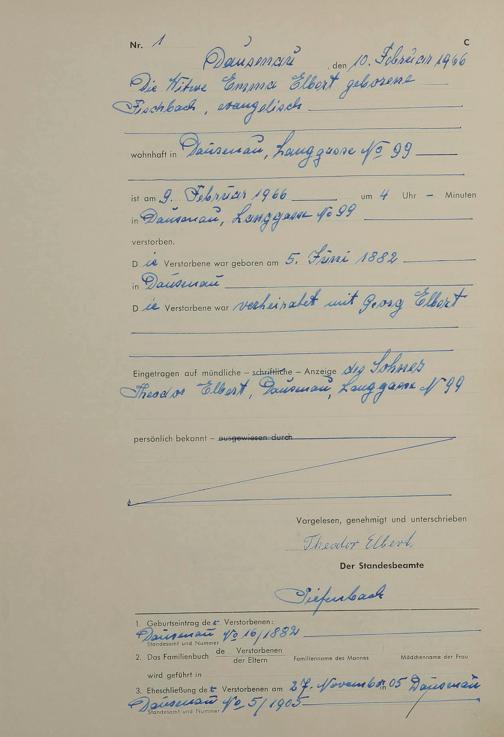 Nr. 1 C
Dausenau, den 10. Februar 1966
Die Witwe Emma Elbert geborene
Fischbach, evangelisch
wohnhaft in Dausenau, Langgasse No 99
ist am 9. Februar 1966 um 4 Uhr – Minuten
in Dausenau, Langgasse No 99
verstorben.
Die Verstorbene war geboren am 5. Juni 1882
in Dausenau
Die Verstorbene war verheiratet mit Georg Elbert
Eingetragen auf mündliche – schriftliche – Anzeige des Sohnes
Theodor Elbert, Dausenau, Langgasse No 99
persönlich bekannt – ausgewiesen durch
Vorgelesen, genehmigt und unterschrieben
Theodor Elbert
Der Standesbeamte
Tiefenbach
1. Geburtseintrag der Verstorbenen:
Dausenau No 16/1882
Standesamt und Nummer
2. Das Familienbuch de Verstorbenen
der Eltern Familienname des Mannes Mädchenname der Frau
wird geführt in
3. Eheschließung der Verstorbenen am 27. November 05 in Dausenau
Dausenau No 5/1905
Standesamt und Nummer